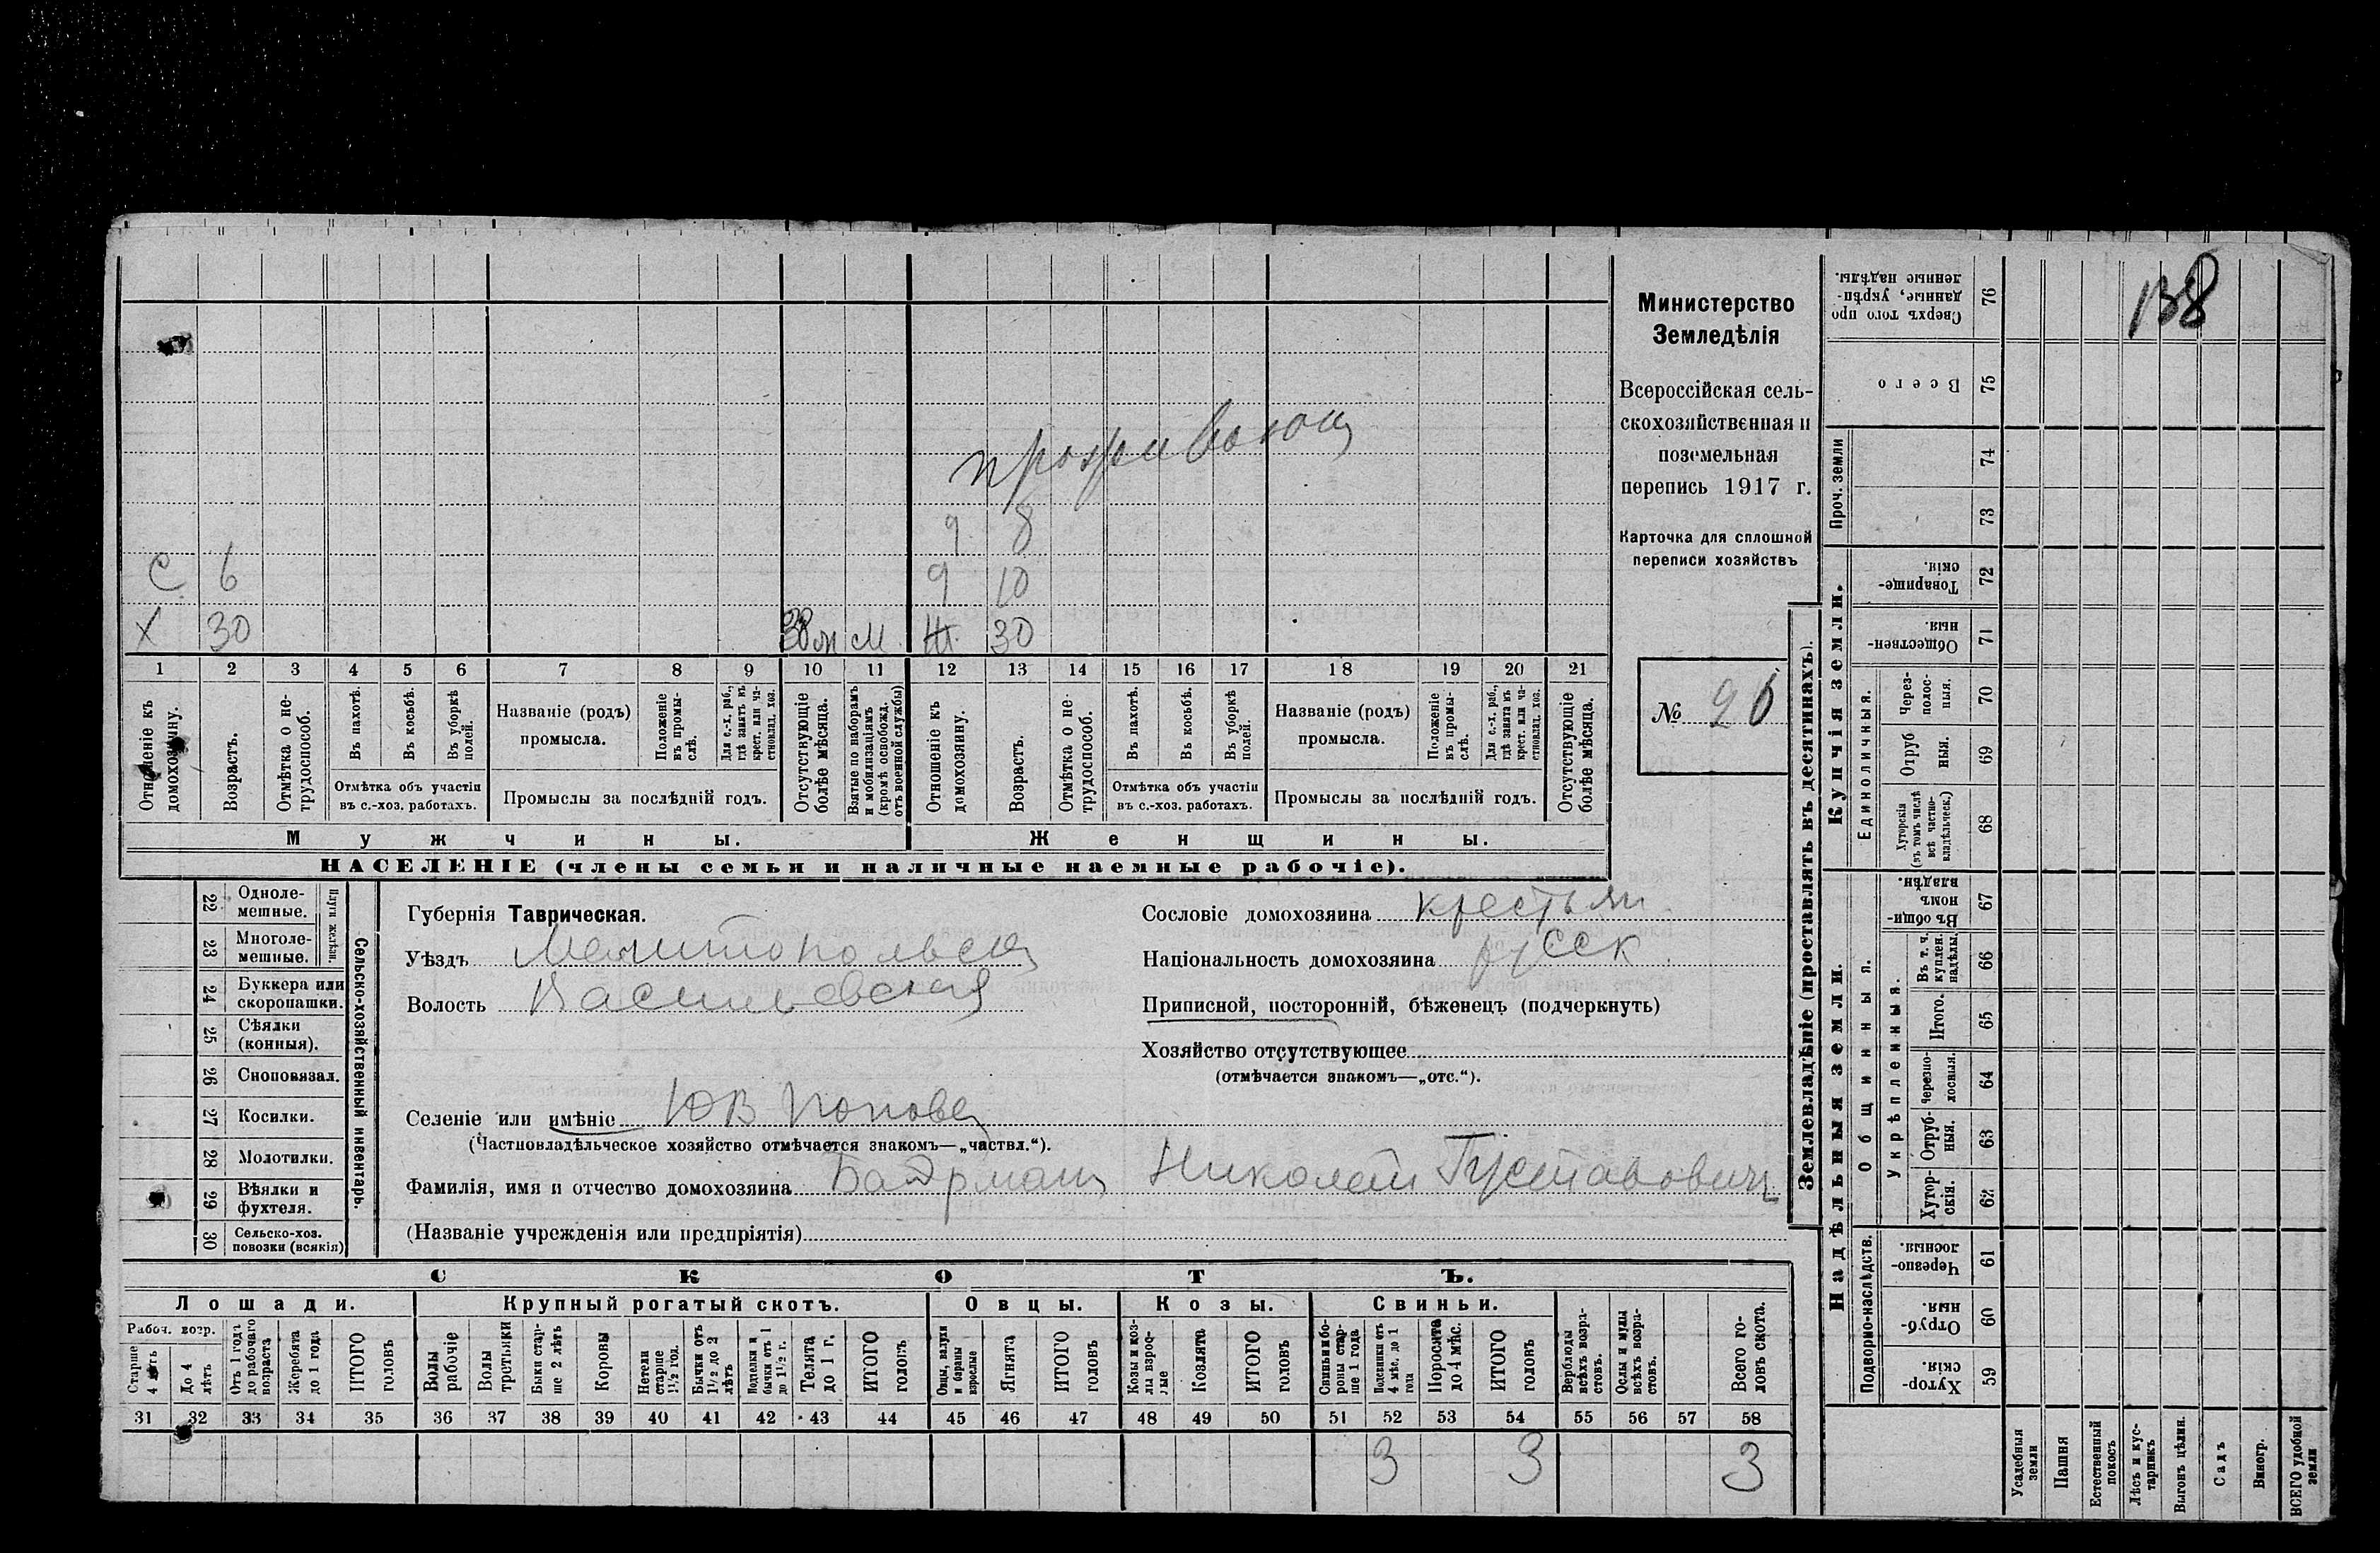 138
Министерство
Земледѣлія
Всероссійская сель-
скохозяйственная и
поземельная
перепись 1917 г.
Карточка для сплошной
переписи хозяйствъ
№ 26
д 8
С 6 д 10
Х 30 м Ж 30
1 2 3 4 5 6 7 8 9 10 11 12 13 14 15 16 17 18 19 20 21
Отношеніе къ домохозяину.
Возрастъ.
Отмѣтка о не-трудоспособ.
Въ пахотѣ.
Въ косьбѣ.
Въ уборкѣ полей.
Отмѣтка объ участіи
въ с.-хоз. работахъ.
Названіе (родъ)
промысла.
Положеніе въ промы-слѣ.
Для с.-х. раб., гдѣ занятъ въ крест. или ча-стновлад. хоз.
Промыслы за послѣдній годъ.
Отсутствующіе болѣе мѣсяца.
Взятые по наборамъ и мобилизаціямъ (кромѣ освобожд. отъ военной службы)
Отношеніе къ домохозяину.
Возрастъ.
Отмѣтка о не-трудоспособ.
Въ пахотѣ.
Въ косьбѣ.
Въ уборкѣ полей.
Отмѣтка объ участіи
въ с.-хоз. работахъ.
Названіе (родъ)
промысла.
Положеніе въ промы-слѣ.
Для с.-х. раб., гдѣ занята въ крест. или ча-стновлад. хоз.
Промыслы за послѣдній годъ.
Отсутствующіе болѣе мѣсяца.
Мужчины.
Женщины.
НАСЕЛЕНІЕ (члены семьи и наличные наемные рабочіе).
Сельско-хозяйственный инвентарь.
Плуги желѣзн.
22 Одноле-мешные.
23 Многоле-мешные.
24 Буккера или скоропашки.
25 Сѣялки (конныя).
26 Сноповязал.
27 Косилки.
28 Молотилки.
29 Вѣялки и фухтеля.
30 Сельско-хоз. повозки (всякія)
Губернія Таврическая.
Уѣздъ Мелитопольск
Волость Васильевская
Сословіе домохозяина крестьян
Національность домохозяина русск
Приписной, посторонній, бѣженецъ (подчеркнуть)
Хозяйство отсутствующее
(отмѣчается знакомъ—„отс.“).
Селеніе или имѣніе ЮВ Попова
(Частновладѣльческое хозяйство отмѣчается знакомъ—„частвл.“).
Фамилія, имя и отчество домохозяина Николай Густавович
(Названіе учрежденія или предпріятія)
СКОТЪ.
Лошади.
Крупный рогатый скотъ.
Овцы.
Козы.
Свиньи.
Рабоч. возр.
Старше 4 лѣтъ
До 4 лѣтъ
Отъ 1 года до рабочаго возраста
Жеребята до 1 года
ИТОГО головъ
Волы рабочіе
Волы третьяки
Быки стар-ше 2 лѣтъ
Коровы
Нетели старше 1½ год.
Бычки отъ 1½ до 2 лѣтъ
Подтелки и бычки отъ 1 до 1½ г.
Телята до 1 г.
ИТОГО головъ
Овцы, валухи и бараны взрослые
Ягнята
ИТОГО головъ
Козы и коз-лы взрос-лые
Козлята
ИТОГО головъ
Свиньи и бо-ровы стар-ше 1 года
Подсвинки отъ 4 мѣс. до 1 года
Поросята до 4 мѣс.
ИТОГО головъ
Верблюды всѣхъ возра-стовъ.
Ослы и мулы всѣхъ возра-стовъ.
Всего го-ловъ скота.
31 32 33 34 35 36 37 38 39 40 41 42 43 44 45 46 47 48 49 50 51 52 53 54 55 56 57 58
3 3 3
Землевладѣніе (проставлять въ десятинахъ).
Надѣльныя земли.
Купчія земли.
Проч. земли
Подворно-наслѣдств.
Общинныя.
Укрѣпленныя.
Единоличныя.
Хутор-скія. 59
Отруб-ныя. 60
Черезпо-лосныя. 61
Хутор-скія. 62
Отруб-ныя. 63
Черезпо-лосныя. 64
Итого. 65
Въ т. ч. куплен. надѣлы. 66
Въ общи-номъ владѣн. 67
Хуторскія (въ томъ числѣ всѣ частно-владѣльческ.) 68
Отруб ныя. 69
Через-полос-ныя. 70
Обществен-ныя. 71
Товарище-скія. 72
73
74
Всего 75
Сверхъ того про данные, укрѣп-ленные надѣлы. 76
Усадебныя земли
Пашня
Естественный покосъ
Лѣсъ и кус-тарникъ
Выгонъ цѣлин.
Садъ
Виногр.
ВСЕГО удобной земли